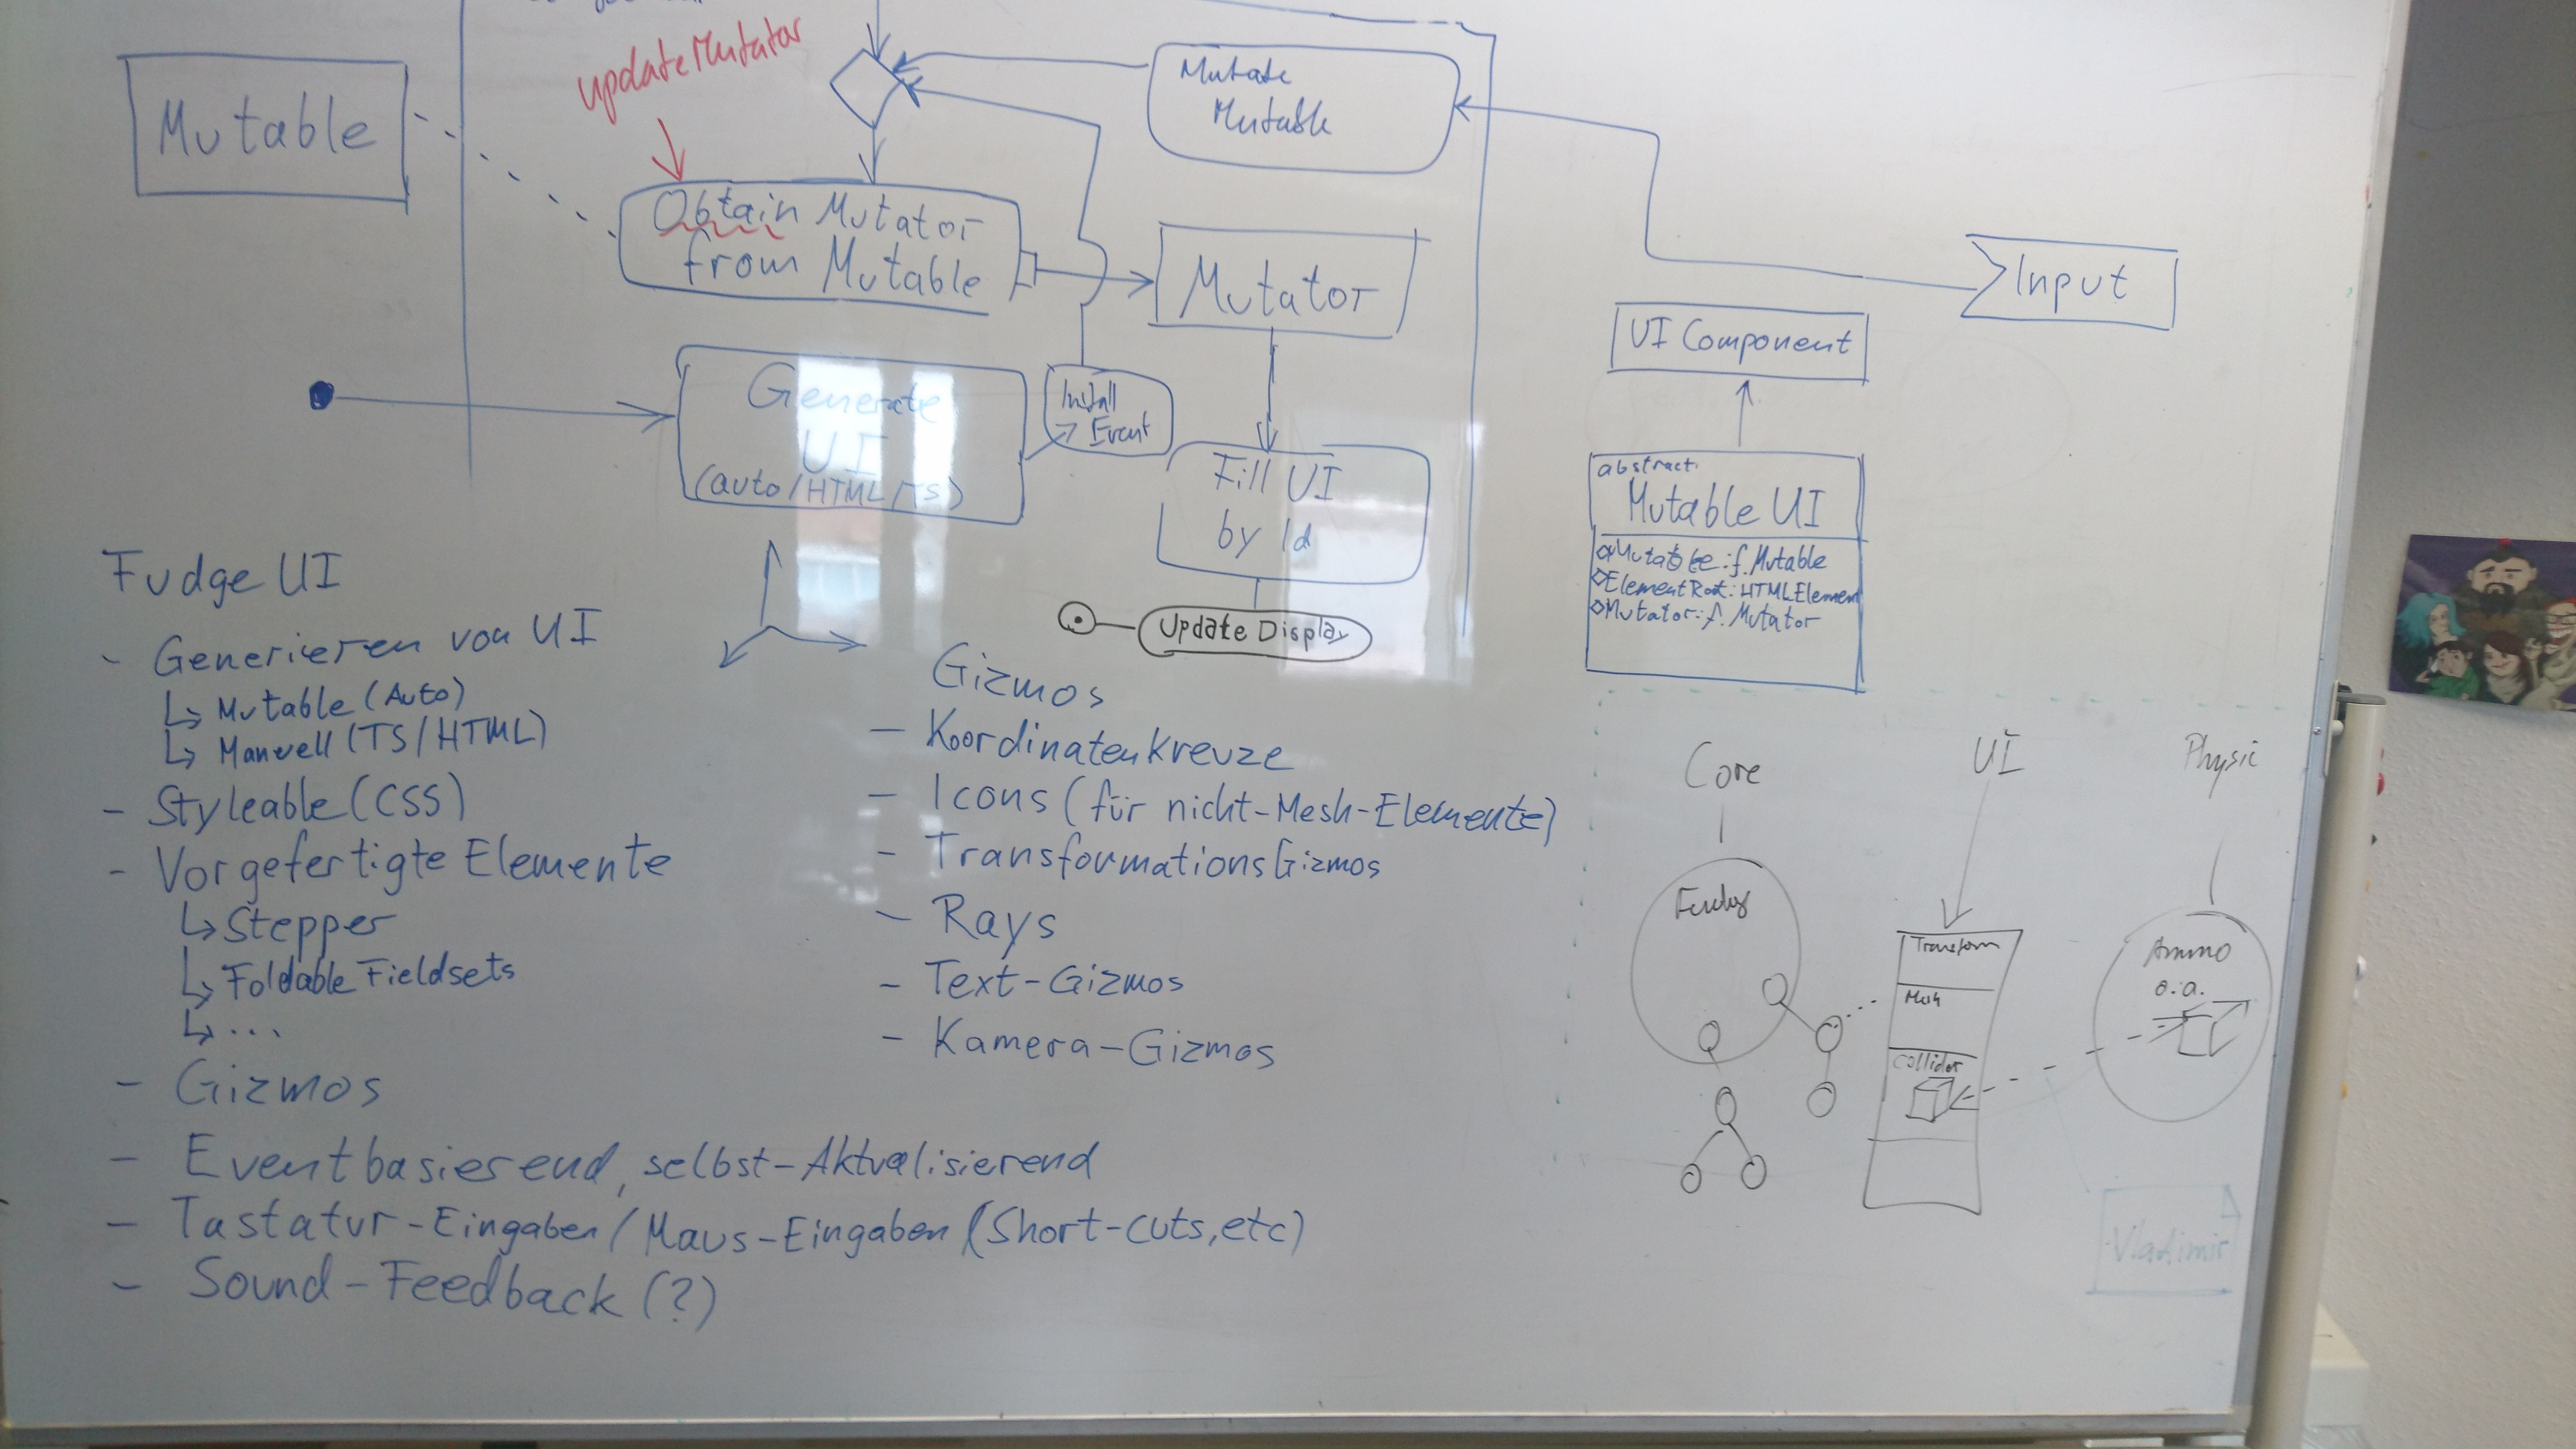 updateMutator
Mutable
Mutate
Mutable
Obtain Mutator
from Mutable
Mutator
Input
UI Component
Generate
UI
(auto/HTML/TS)
Install
Event
Fill UI
by Id
Update Display
abstract
Mutable UI
Mutable: f.Mutable
ElementRoot: HTMLElemen
Mutator: f.Mutator
Fudge UI
- Generieren von UI
↳ Mutable (Auto)
↳ Manuell (TS/HTML)
- Styleable (CSS)
- Vorgefertigte Elemente
↳ Stepper
↳ Foldable Fieldsets
↳ ...
- Gizmos
- Eventbasierend, selbst-Aktualisierend
- Tastatur-Eingaben / Maus-Eingaben (Short-cuts, etc)
- Sound-Feedback (?)
Gizmos
- Koordinatenkreuze
- Icons (für nicht-Mesh-Elemente)
- TransformationsGizmos
- Rays
- Text-Gizmos
- Kamera-Gizmos
Core
UI
Physic
Fudge
Transform
Mesh
Collider
Ammo
o.a.
Vladimir